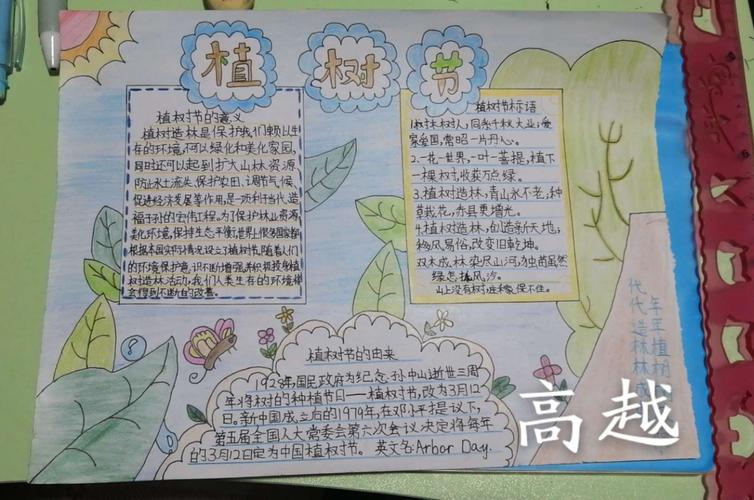 植树节
植树节的意义
植树造林是保护我们赖以生
存的环境,可以绿化和美化家园,
同时还可以起到扩大山林资源、
防止水土流失、保护农田、调节气候、
促进经济发展等作用,是一项利于当代、造
福于子孙的宏伟工程。为了保护林业资源,
美化环境,保持生态平衡,世界上很多国家都
根据本国实际情况设立了植树节。随着人们
的环境保护意识不断增强,并积极投身植
树造林活动,我们人类生存的环境
会得到不断的改善。
植树节标语
1.树木树人,同系千秋大业;爱
家爱国,常昭一片丹心。
2.一花一世界,一叶一菩提,植下
一棵树,收获万点绿。
3.植树造林,青山水不老,种
草栽花,赤县更增光。
4.植树造林,创造新天地,
移风易俗,改变旧乾坤。
双木成林染尽山河,独茵虽然
绿怎挡风沙。
山上没有树,庄稼保不住。
植树节的由来
1928年,国民政府为纪念孙中山逝世三周
年将植树的种植节日——植树节,改为3月12
日。新中国成立后的1979年,在邓小平提议下,
第五届全国人大常委会第六次会议决定将每年
的3月12日定为中国植树节。英文名:Arbor Day.
年年植树
代代造林林成
高越